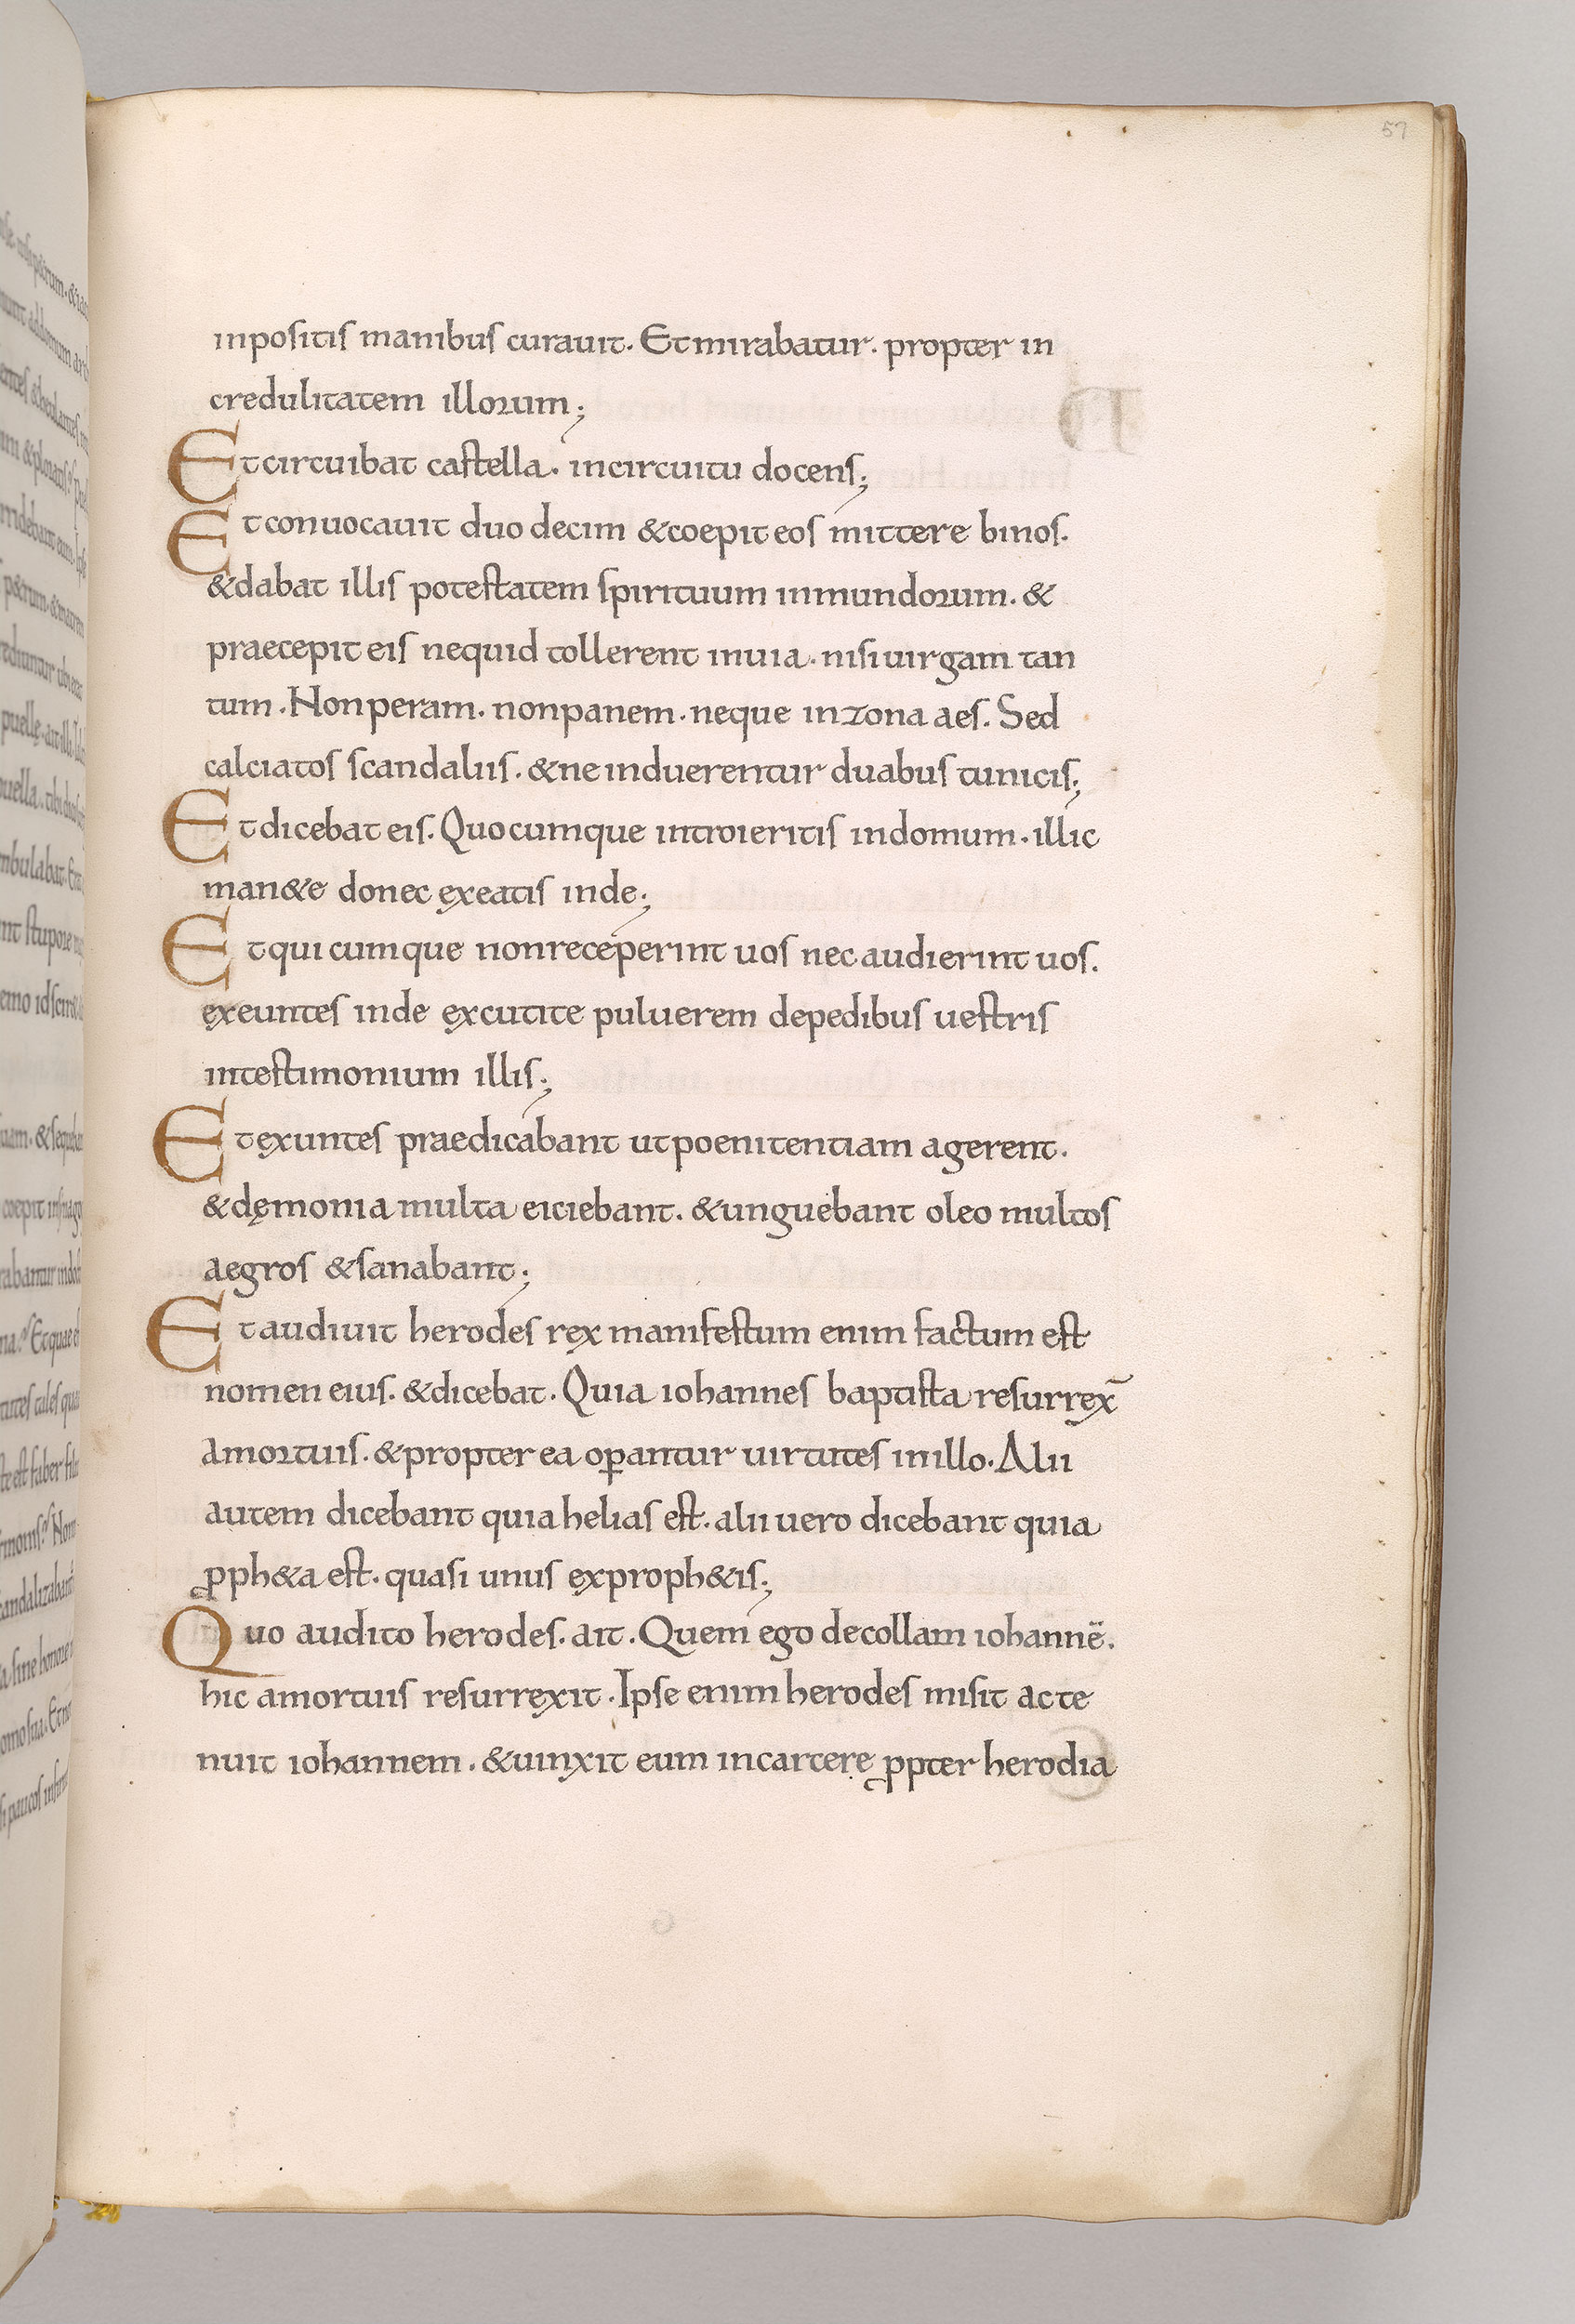 57
inpositis manibus curauit. Et mirabatur. propter in
credulitatem illorum;
Et circuibat castella. in circuitu docens;
Et conuocauit duodecim & coepit eos mittere binos.
& dabat illis potestatem spirituum inmundorum. &
praecepit eis nequid tollerent in uia. nisi uirgam tan
tum. Non peram. non panem. neque in zona aes. Sed
calciatos scandaliis. & ne induerentur duabus tunicis;
Et dicebat eis. Quocumque introieritis in domum. illic
man&e donec exeatis inde;
Et quicumque non receperint uos nec audierint uos.
exeuntes inde excutite puluerem de pedibus uestris
in testimonium illis;
Et exuntes praedicabant ut poenitentiam agerent.
& dęmonia multa eiciebant. & unguebant oleo multos
aegros & sanabant;
Et audiuit herodes rex manifestum enim factum est
nomen eius. & dicebat. Quia iohannes baptista resurrex̄
a mortuis. & propterea oꝑantur uirtutes in illo. Alii
autem dicebant quia helias est. alii uero dicebant quia
ꝓph&a est. quasi unus ex proph&is;
Quo audito herodes. ait. Quem ego decollam iohannē.
hic a mortuis resurrexit. Ipse enim herodes misit ac te
nuit iohannem. & uinxit eum in carcere ꝓpter herodia